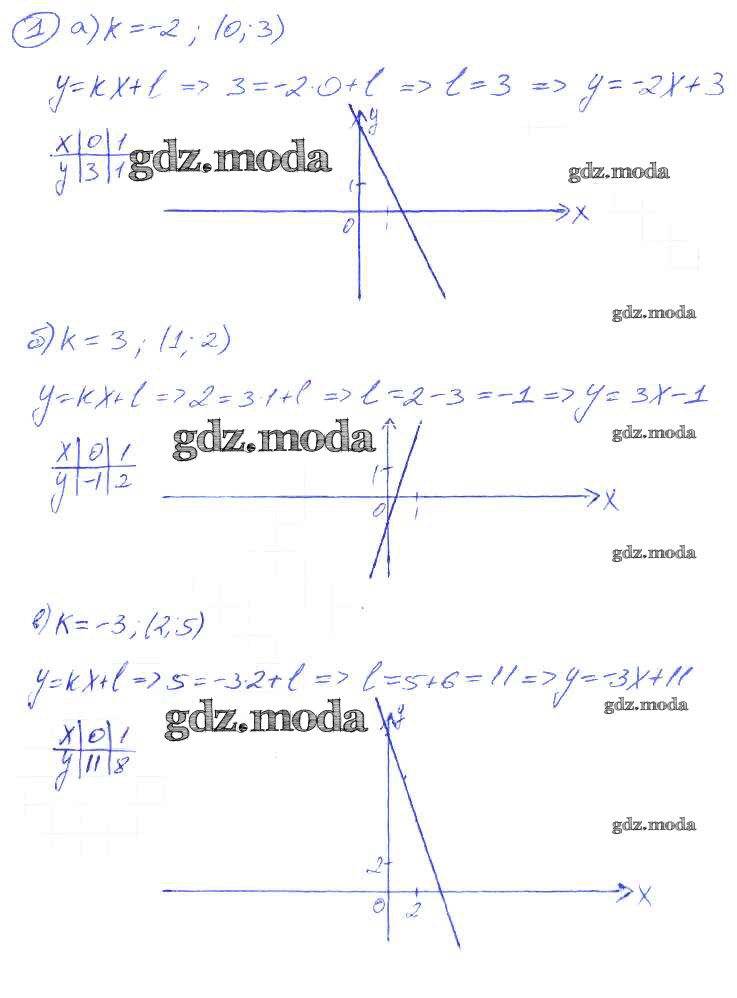 1 а) k = -2 ; (0; 3)
y = kx + l => 3 = -2·0 + l => l = 3 => y = -2x + 3
x | 0 | 1
y | 3 | 1
gdz.moda
gdz.moda
y
1
0 1 x
gdz.moda
б) k = 3 ; (1; 2)
y = kx + l => 2 = 3·1 + l => l = 2 - 3 = -1 => y = 3x - 1
gdz.moda
gdz.moda
x | 0 | 1
y | -1 | 2
1
0 1 x
gdz.moda
в) k = -3 ; (2; 5)
y = kx + l => 5 = -3·2 + l => l = 5 + 6 = 11 => y = -3x + 11
gdz.moda
gdz.moda
x | 0 | 1
y | 11 | 8
y
gdz.moda
2
0 2 x